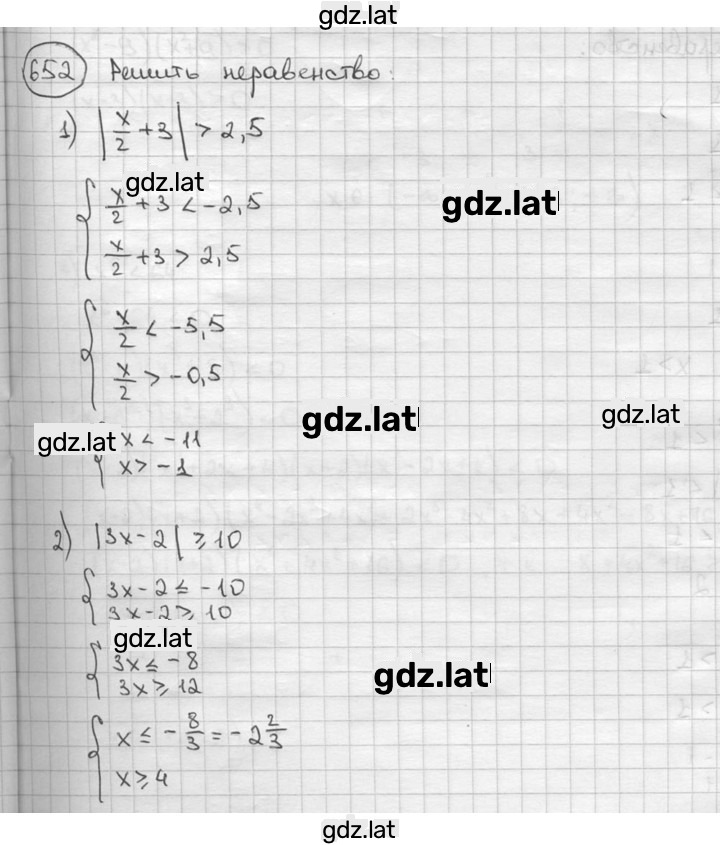 gdz.lat
652 Решить неравенство:
1) |x/2 + 3| > 2,5
gdz.lat
{ x/2 + 3 < -2,5
gdz.lat
x/2 + 3 > 2,5
{ x/2 < -5,5
x/2 > -0,5
gdz.lat
gdz.lat
gdz.lat
{ x < -11
x > -1
2) |3x - 2| ⩾ 10
{ 3x - 2 ⩽ -10
3x - 2 ⩾ 10
gdz.lat
{ 3x ⩽ -8
gdz.lat
3x ⩾ 12
{ x ⩽ -8/3 = -2 2/3
x ⩾ 4
gdz.lat